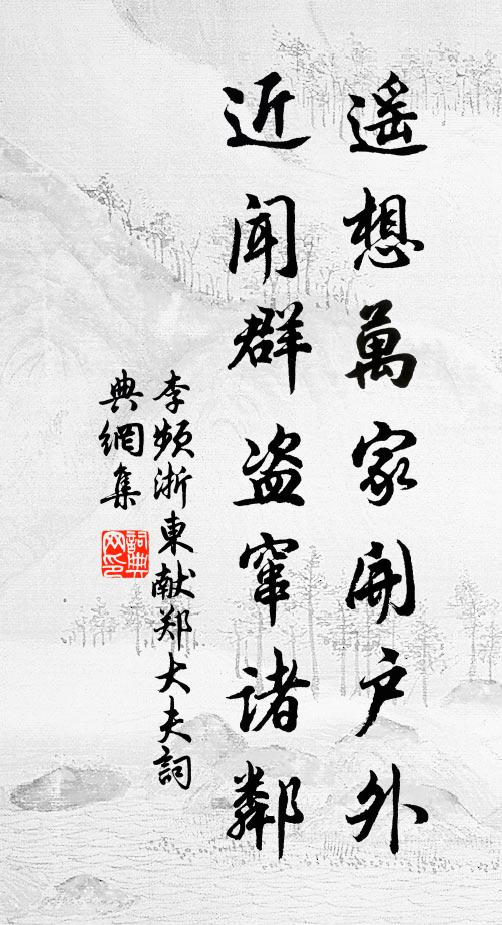 遥想萬家開户外
近闻群盗窜诸鄰
李频浙東献郑大夫詞
典網集
詞典网印